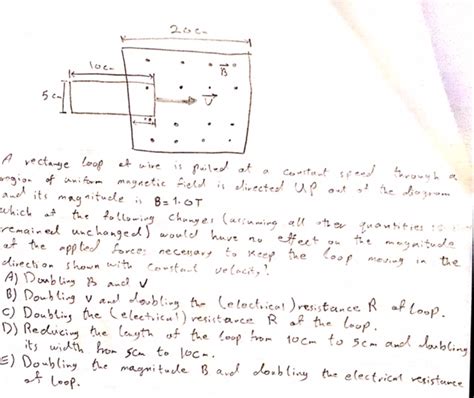 20cm
B
10cm
5cm
V
A rectange loop of wire is pulled at a constant speed through a
region of uniform magnetic field is directed UP out of the diagram
and its magnitude is B=1.0T
which of the following changes (assuming all other quantities
remained unchanged) would have no effect on the magnitude
of the applied force necessary to keep the loop moving in the
direction shown with constant velocity?
A) Doubling B and V
B) Doubling V and doubling the (electrical) resistance R of loop.
C) Doubling the (electrical) resistance R of the loop.
D) Reducing the length of the loop from 10cm to 5cm and doubling
its width from 5cm to 10cm.
E) Doubling the magnitude B and doubling the electrical resistance
of loop.